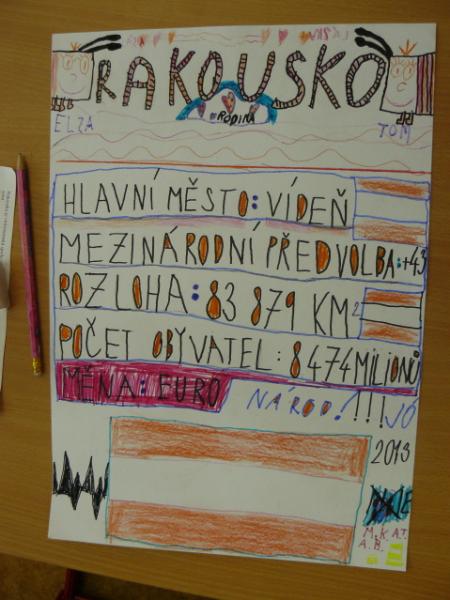 RAKOUSKO
RODINA
ELZA
TOM
HLAVNÍ MĚSTO: VÍDEŇ
MEZINÁRODNÍ PŘEDVOLBA: +43
ROZLOHA: 83 879 KM²
POČET OBYVATEL: 8 474 MILIONŮ
MĚNA: EURO
NÁROD! !!! JÓ
2013
M.K. A.T.
A.B.